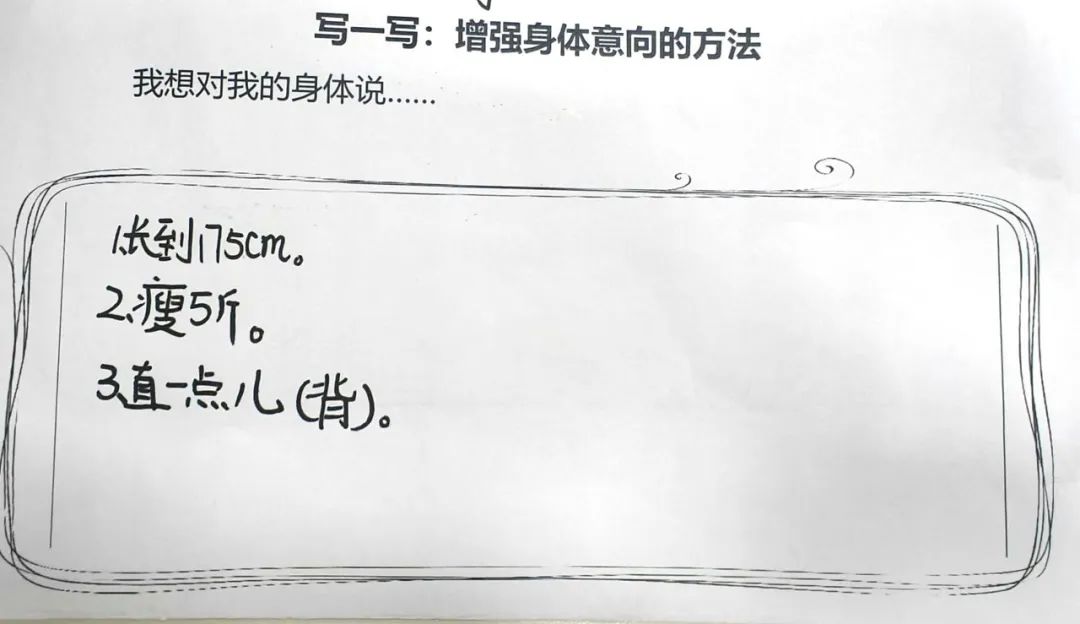 写一写：增强身体意向的方法
我想对我的身体说……
1.长到175cm。
2.瘦5斤。
3.直一点儿(背)。